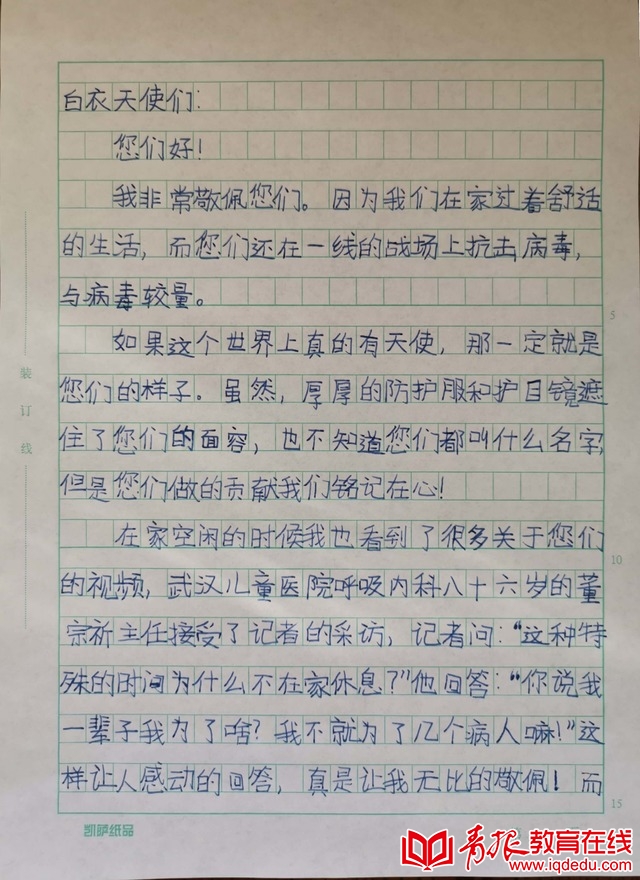 白衣天使们：
您们好！
我非常敬佩您们。因为我们在家过着舒适
的生活，而您们还在一线的战场上抗击病毒，
与病毒较量。
5
如果这个世界上真的有天使，那一定就是
您们的样子。虽然，厚厚的防护服和护目镜遮
住了您们的面容，也不知道您们都叫什么名字，
但是您们做的贡献我们铭记在心！
在家空闲的时候我也看到了很多关于您们
10
的视频，武汉儿童医院呼吸内科八十六岁的董
宗祈主任接受了记者的采访，记者问：“这种特
殊的时间为什么不在家休息？”他回答：“你说我
一辈子我为了啥？我不就为了几个病人嘛！”这
样让人感动的回答，真是让我无比的敬佩！而
15
装订线
凯萨纸品
青报教育在线
www.iqdedu.com